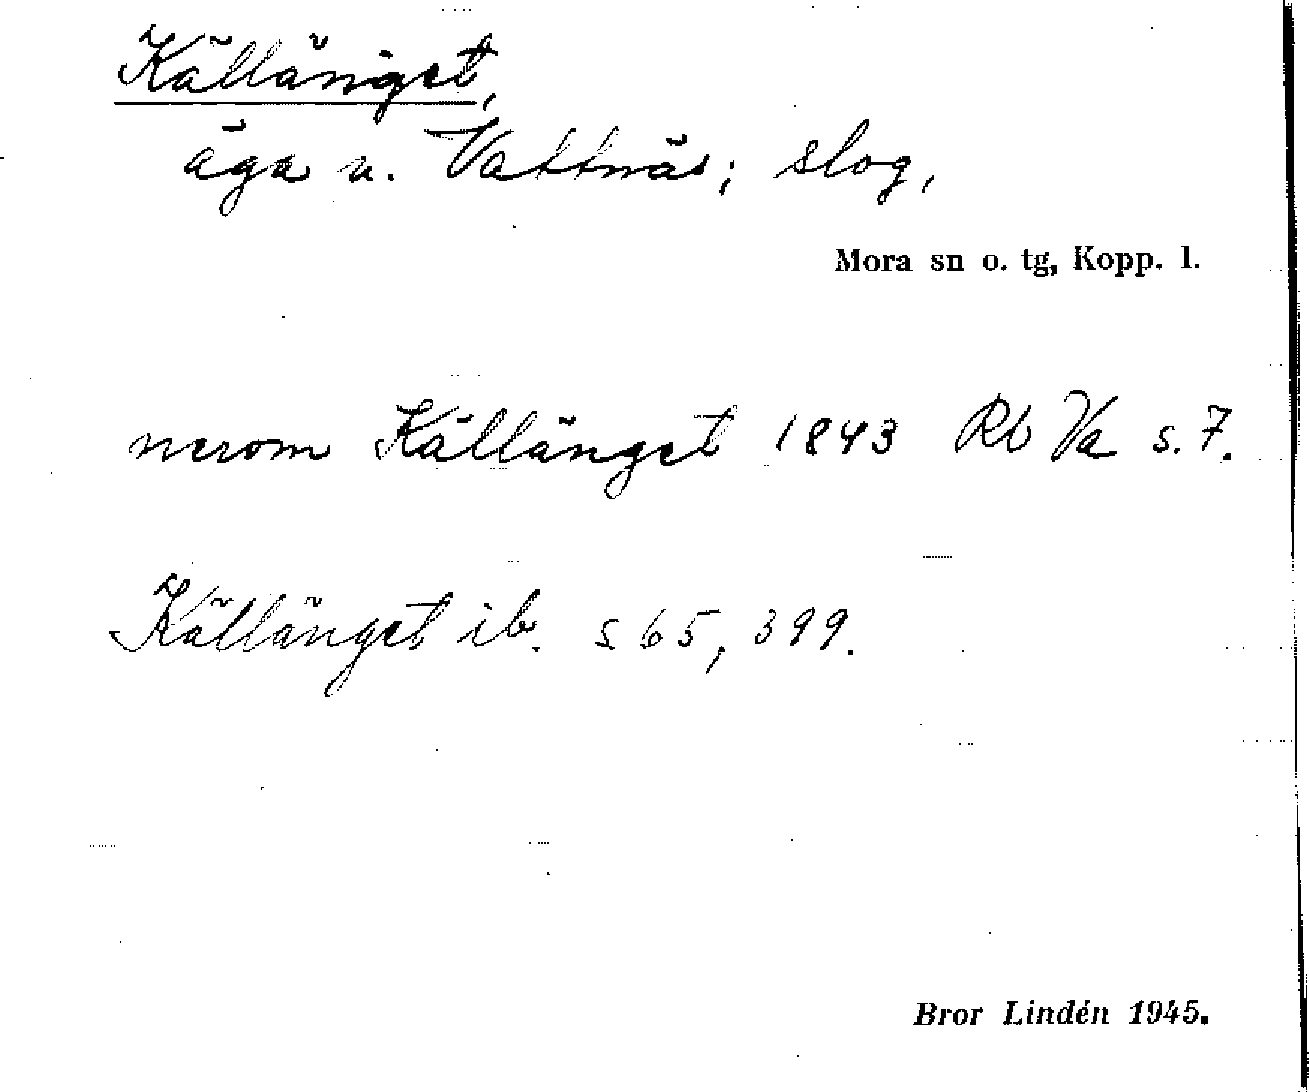 Källänget,
äga u. Vattnäs; slog,
Mora sn o. tg, Kopp. l.
nerom Källänget 1843 Rb Va s. 7.
Källänget ib. s 65, 399.
Bror Lindén 1945.